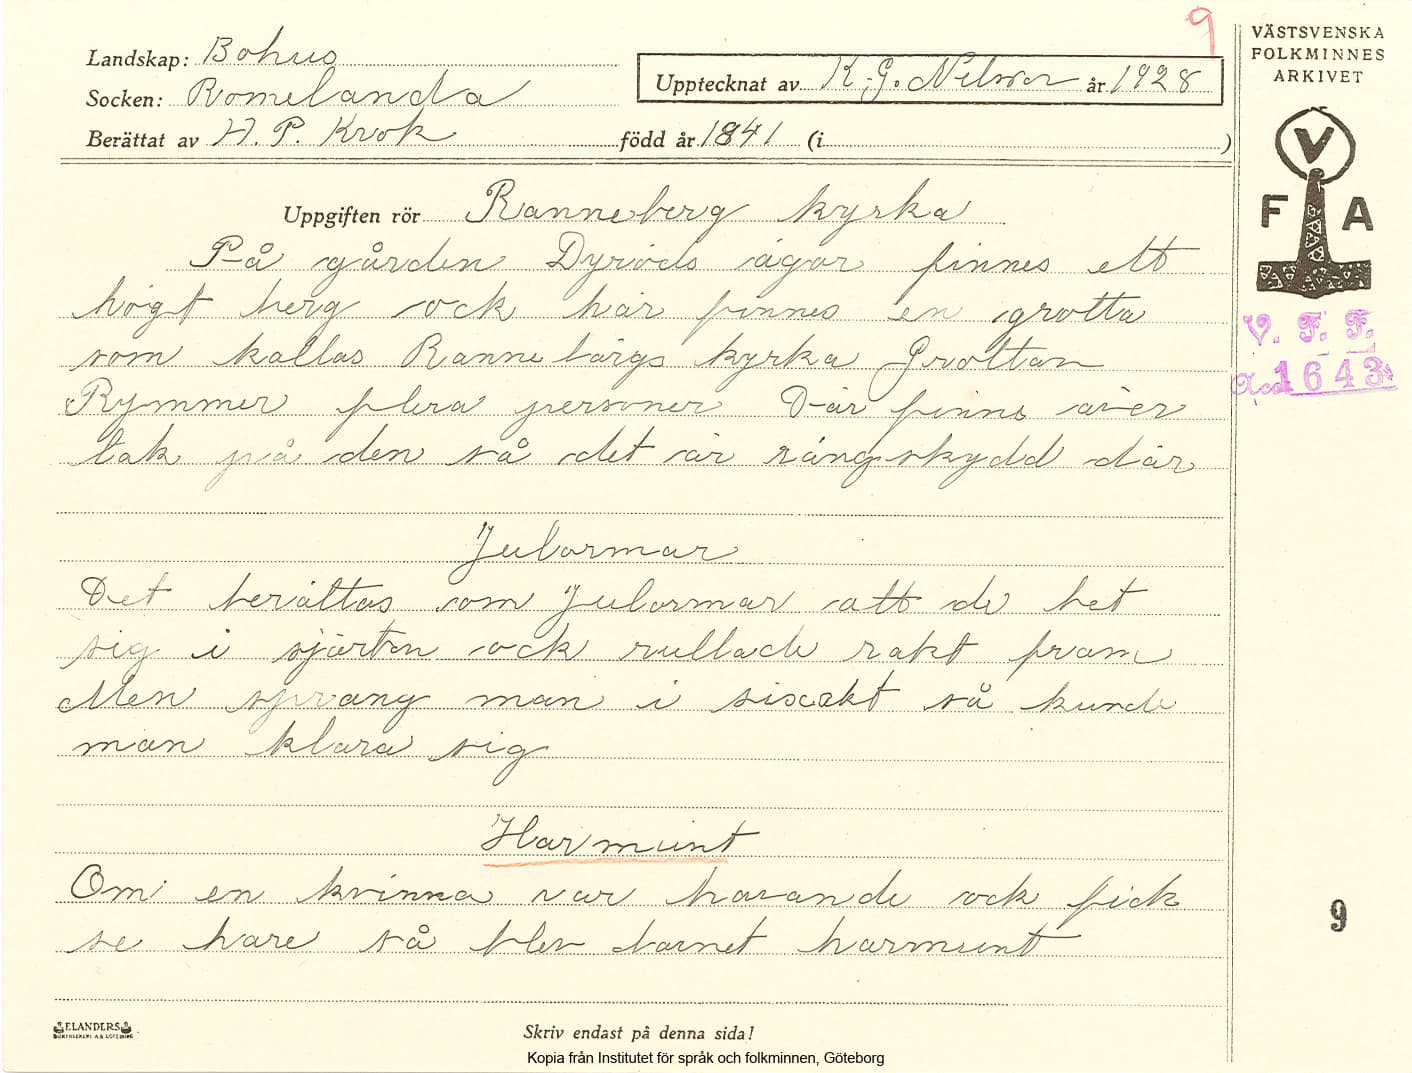 9
Landskap: Bohus
Socken: Romelanda
Upptecknat av K. G. Nilson år 1928
Berättat av H. P. Krok född år 1841 (i )
Uppgiften rör Ranneberg kyrka
På gården Dyröds ägor finnes ett
högt berg ock här finnes en grotta
som kallas Rannebärgs kyrka Grottan
Rymmer flera personer Där finns äver
tak på den så det är rängskydd där
Julormar
Det berättas om Julormar att de bet
sig i sjärten ock rullade rakt fram
Men sprang man i sisakt så kunde
man klara sig
Harmunt
Om en kvinna var havande ock fick
se hare så blev barnet harmunt
ELANDERS
Skriv endast på denna sida!
Kopia från Institutet för språk och folkminnen, Göteborg
VÄSTSVENSKA
FOLKMINNES
ARKIVET
V
F A
V. F. F.
Acc. 1643
9